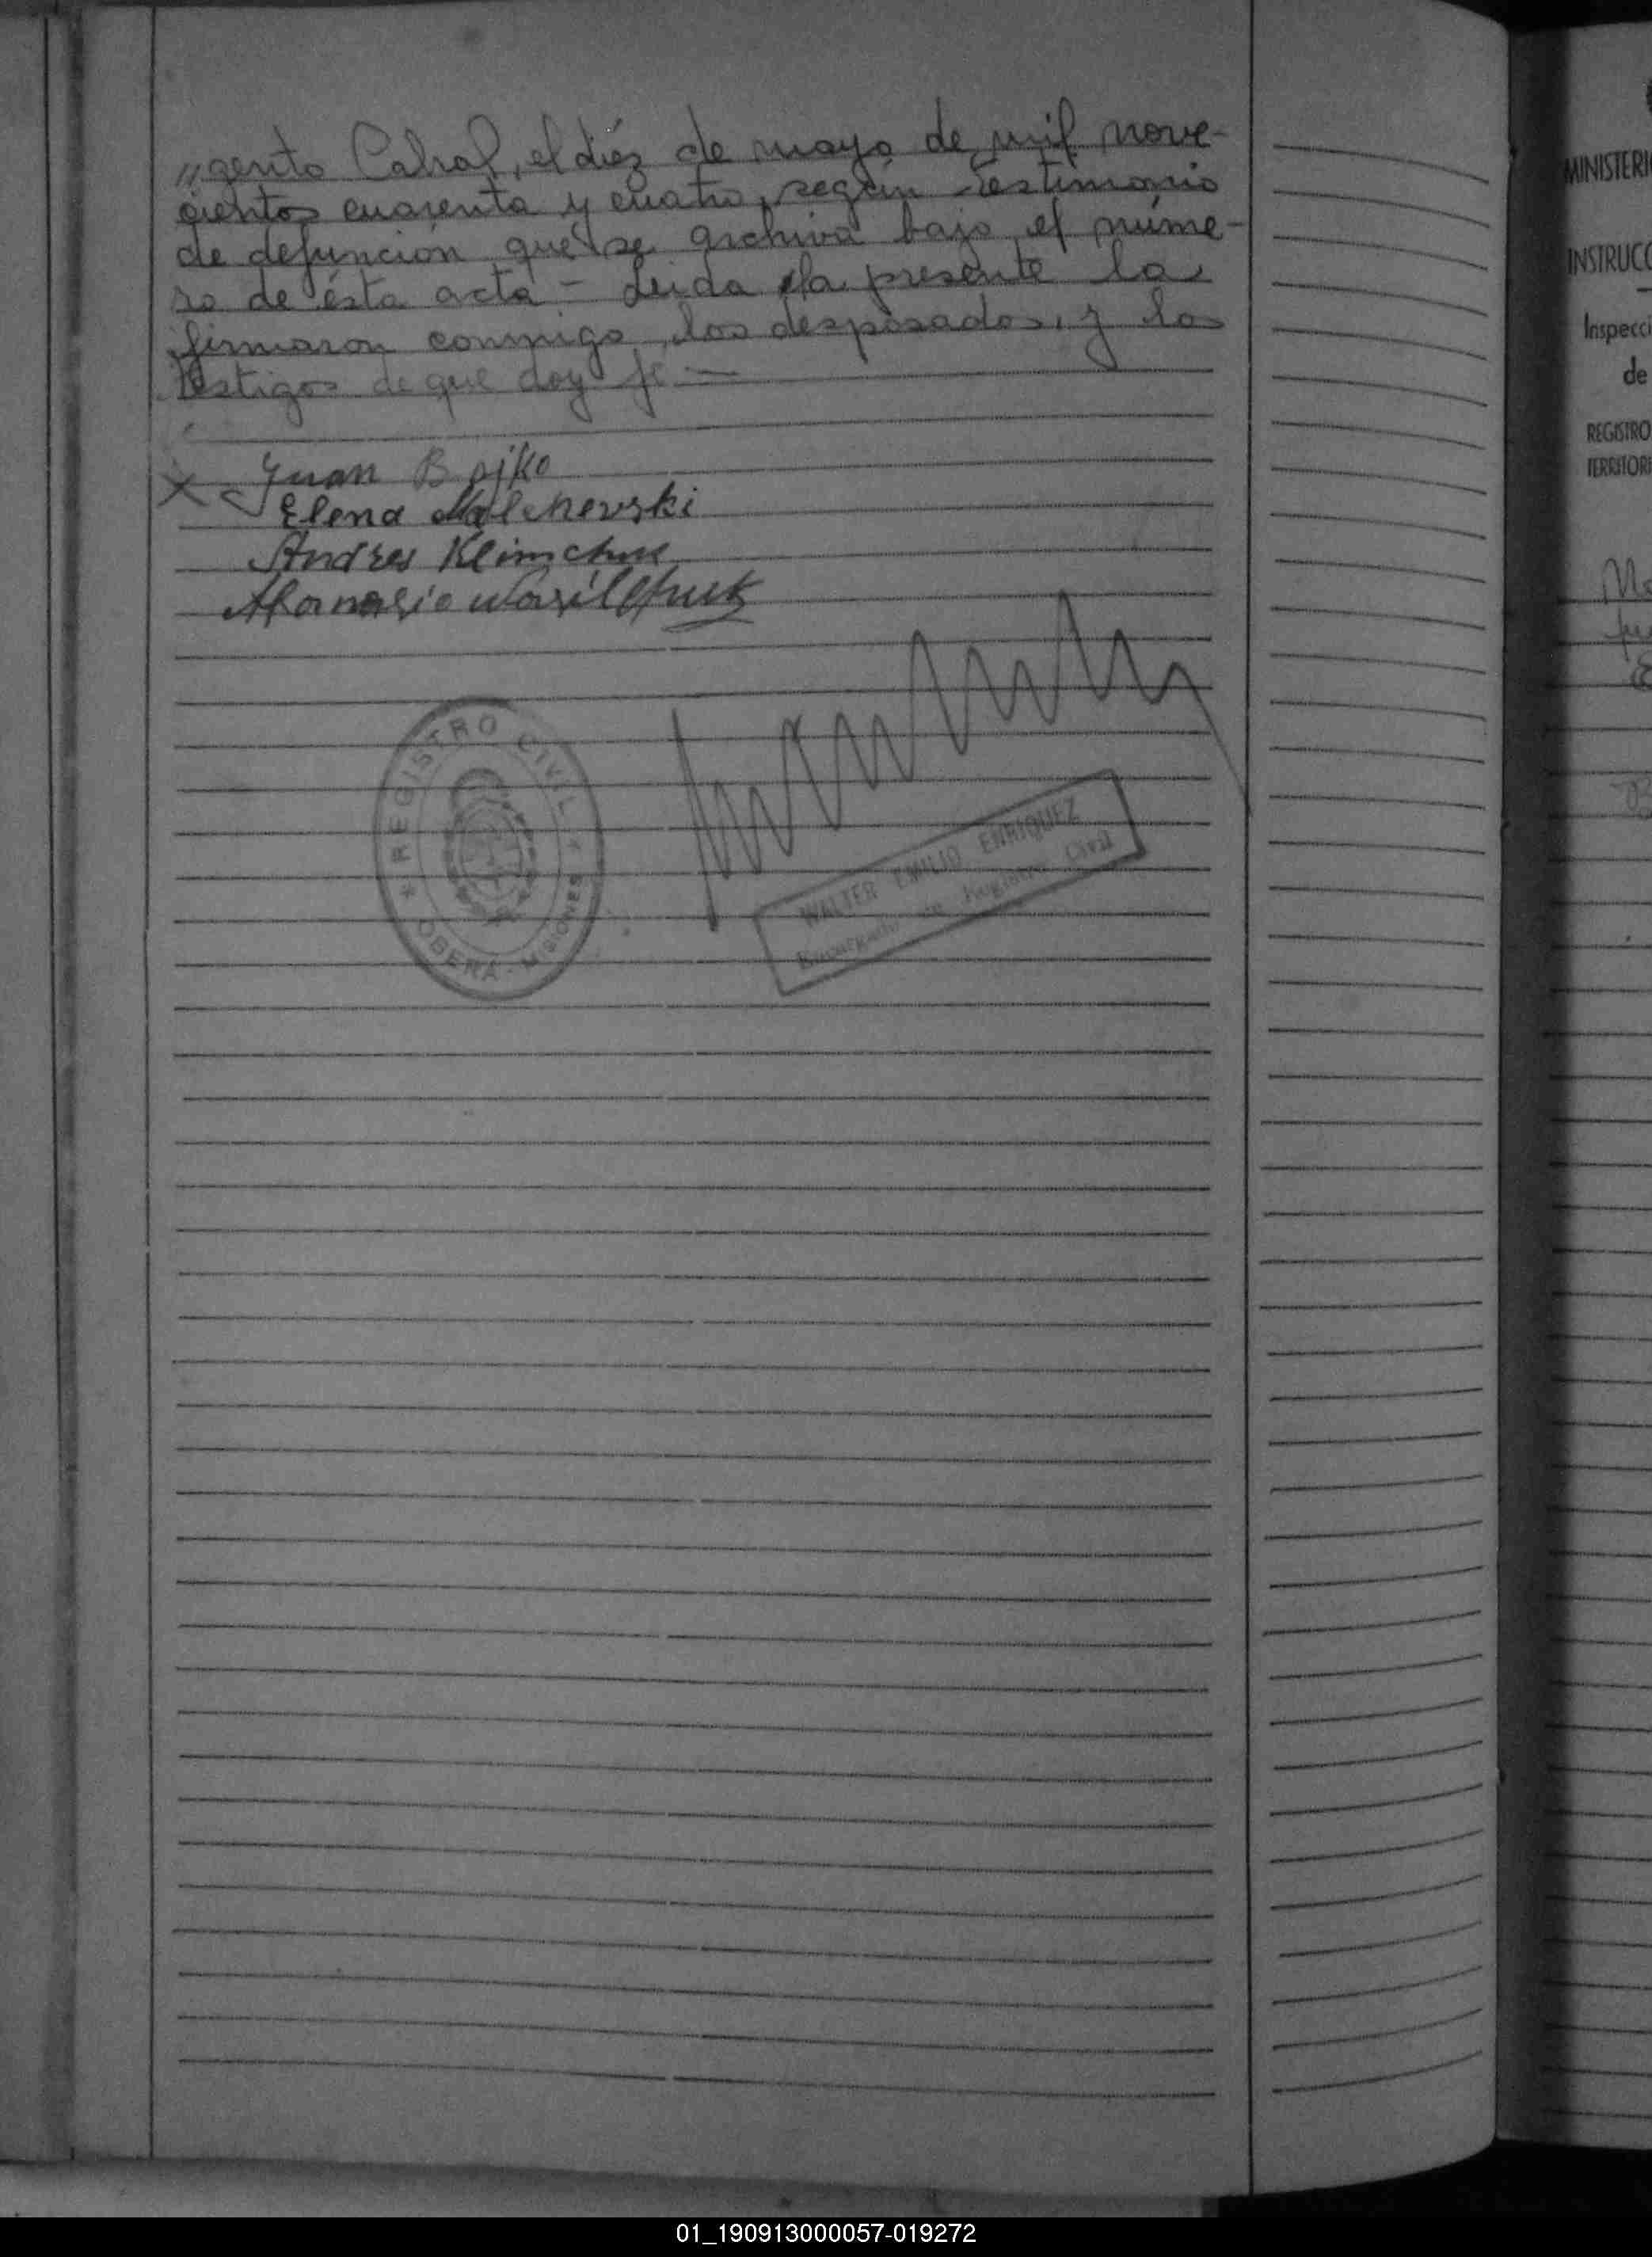 "gento Cabral, el diéz de mayo de mil nove-
cientos cuarenta y cuatro, según testimonio
de defunción que se archiva bajo el núme-
ro de ésta acta - Leida la presente la
firmaron conmigo, los desposados, y los
testigos de que doy fé. —
X Juan Bojko
Elena Malchevski
Andres Klimchuk
Afanasio
REGISTRO CIVIL
OBERÁ - MISIONES
WALTER EMILIO ENRIQUEZ
Encargado de Registro Civil
MINISTERI
INSTRUCC
Inspecci
de
REGISTRO
TERRITORI
01_190913000057-019272